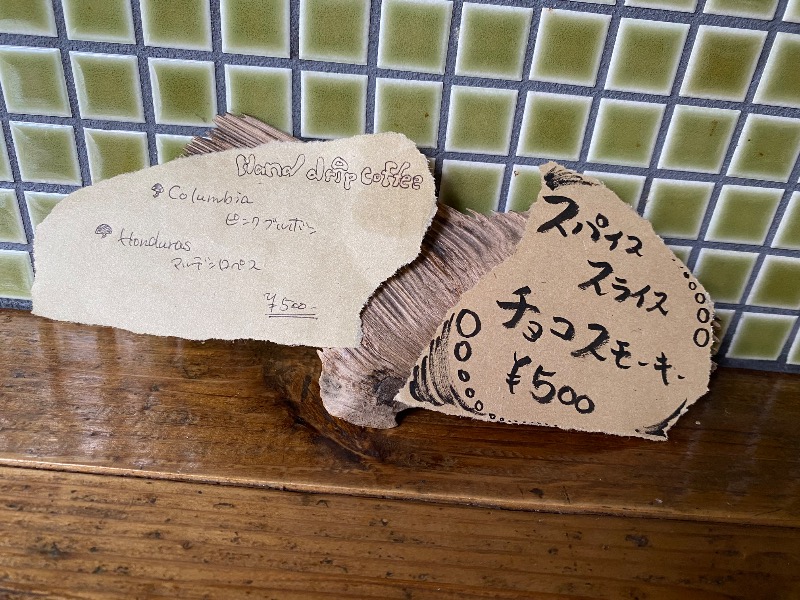 Hand drip coffee
Columbia
ピンクブルボン
Honduras
マルデンロペス
¥500-
スパイス
スライス
チョコスモーキー
¥500